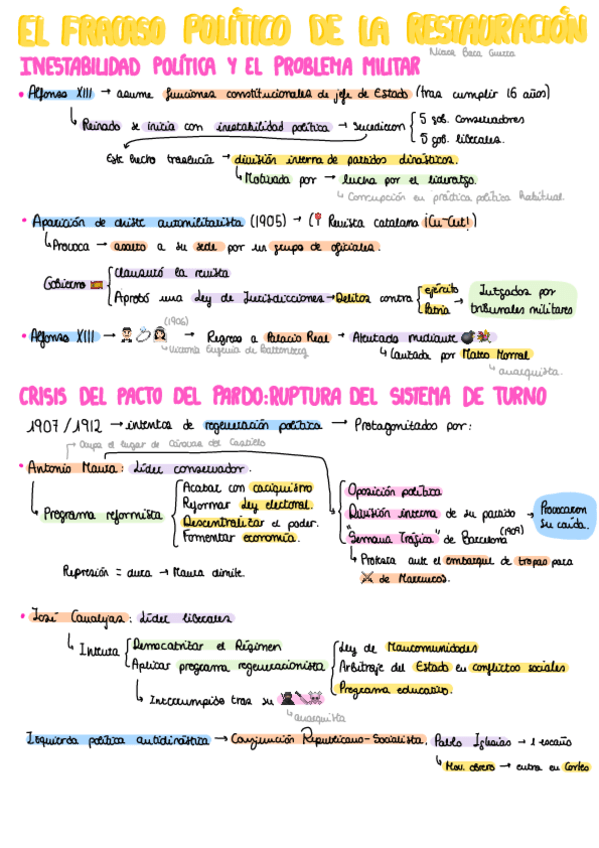 EL FRACASO POLÍTICO DE LA RESTAURACIÓN
INESTABILIDAD POLÍTICA Y EL PROBLEMA MILITAR
• Alfonso XIII → asume funciones constitucionales de jefe de Estado (tras cumplir 16 años)
Reinado se inicia con inestabilidad política → sucedieron { 5 gob. conservadores
5 gob. liberales.
Este hecho traslucía → división interna de partidos dinásticos.
Motivada por → lucha por el liderazgo.
Corrupción en práctica política habitual.
• Aparición de chiste antimilitarista (1905) → ( Revista catalana ¡Cu-Cut!)
Provoca → asalto a su sede por un grupo de oficiales.
Gobierno { clausuró la revista
Aprobó una Ley de Jurisdicciones → Delitos contra { ejército
Patria → Juzgados por tribunales militares
(1906)
• Alfonso XIII → → Regreso a Palacio Real → Atentado mediante
Victoria Eugenia de Battenberg
Causada por Mateo Morral
anarquista.
CRISIS DEL PACTO DEL PARDO: RUPTURA DEL SISTEMA DE TURNO
1907/1912 → intentos de regeneración política → Protagonizados por:
Ocupa el lugar de Cánovas del Castillo
• Antonio Maura: Líder conservador.
Programa reformista { Acabar con caciquismo
Reformar Ley electoral.
Descentralizar el poder.
Fomentar economía.
{ Oposición política
División interna de su partido
"Semana Trágica" de Barcelona (1909)
→ Provocaron su caída.
Protesta ante el embarque de tropas para
de Marruecos.
Represión = dura → Maura dimite.
• José Canalejas: Líder liberales
Intenta { Democratizar el Régimen
Aplicar programa regeneracionista { Ley de Mancomunidades
Arbitraje del Estado en conflictos sociales
Programa educativo.
Interrumpido tras su
anarquista
Izquierda política antidinástica → Conjunción Republicano-Socialista. Pablo Iglesias → 1 escaño
Mov. obrero → entra en Cortes